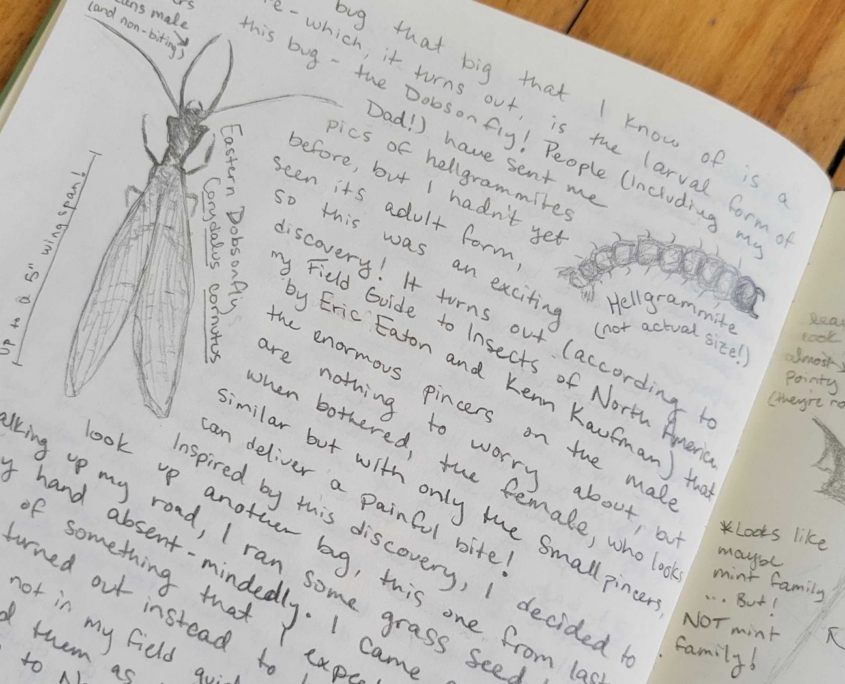 means male
(and non-biting)
bug that big that I know of is a
- which, it turns out, is the larval form of
this bug - the Dobsonfly! People (including my
Dad!) have sent me
pics of hellgrammites
before, but I hadn't yet
seen its adult form,
so this was an exciting
discovery! It turns out (according to
my Field Guide to Insects of North America
by Eric Eaton and Kenn Kaufman) that
the enormous pincers on the male
are nothing to worry about, but
when bothered, the female, who looks
similar but with only the small pincers,
can deliver a painful bite!
Inspired by this discovery, I decided to
look up another bug, this one from last
up my road, I ran some grass seed
hand absent-mindedly. I came
of something that I
turned out instead to
not in my field
them as
to
Eastern Dobsonfly
Corydalus cornutus
up to a 5" wing span!
Hellgrammite
(not actual size!)
look
almost
pointy
(they're
*Looks like
maybe
mint family
... But!
NOT mint
family!